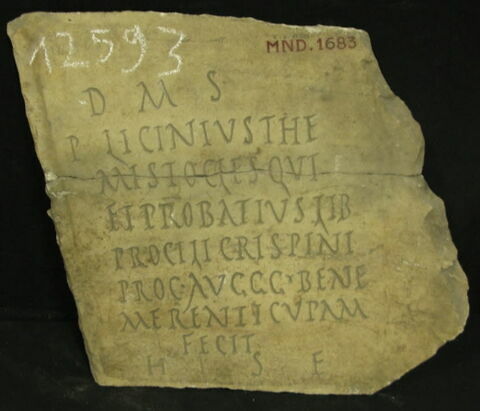 12593
MND.1683
D M S
P LICINIVS THE
MISTOCLES QVI
ET PROBATIVS LIB
PROCILI CRISPINI
PROC·AVGGG·BENE
MERENTI CVPAM
FECIT
H S E